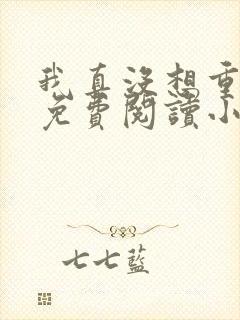 我真没想重
免費閱讀小
七七藍